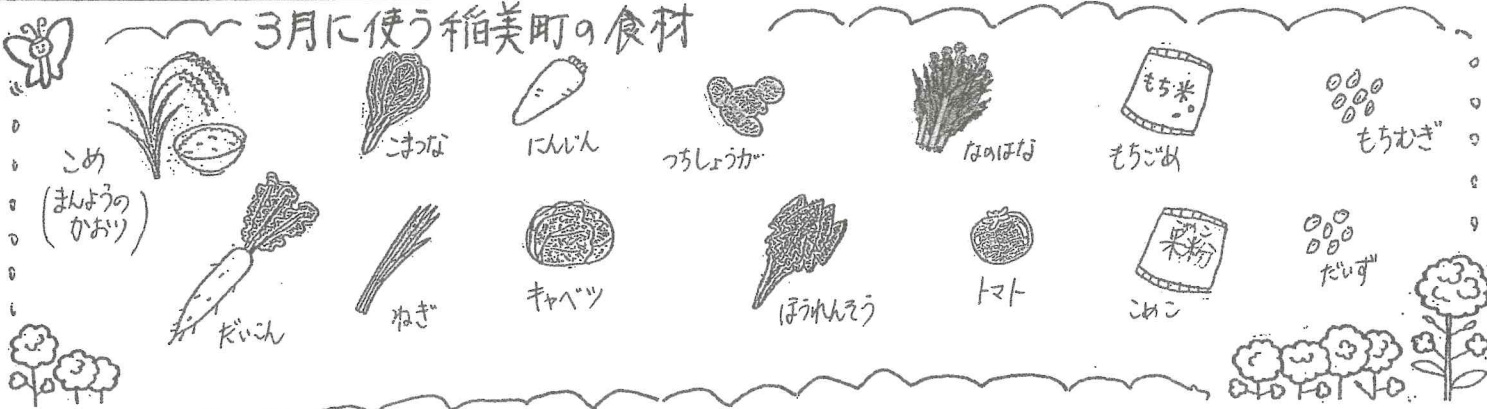 3月に使う稲美町の食材
こめ
(まんようの
かおり)
こまつな
にんじん
つちしょうが
なのはな
もち米
もちごめ
もちむぎ
だいこん
ねぎ
キャベツ
ほうれんそう
トマト
こめこ
だいず